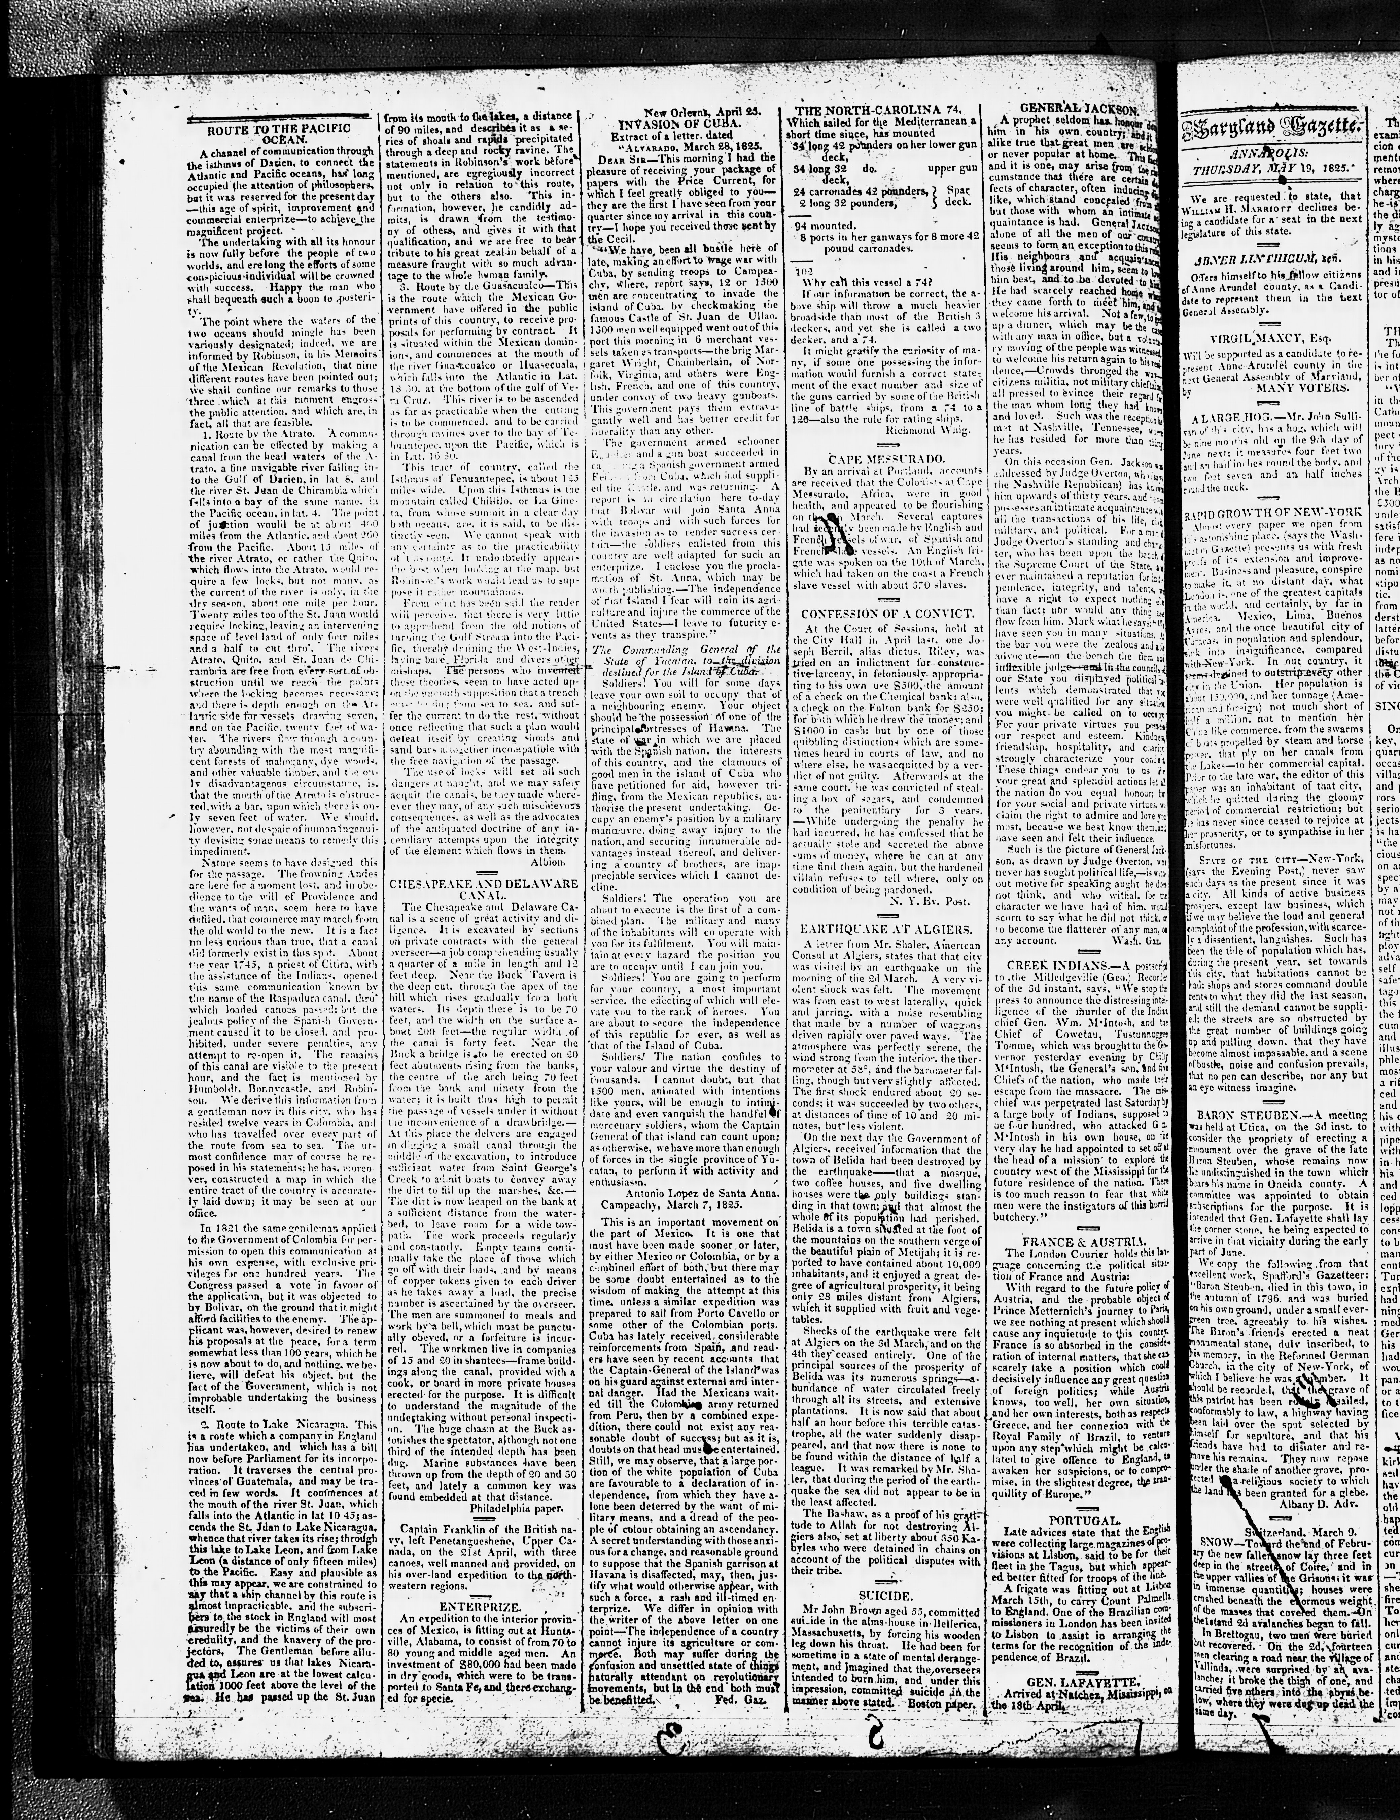 ROUTE TO THE PACIFIC
OCEAN.
A channel of communication through
the isthmus of Darien, to connect the
Atlantic and Pacific oceans, has long
occupied the attention of philosophers,
but it was reserved for the present day
—this age of spirit, improvement and
commercial enterprize—to achieve the
magnificent project.
The undertaking with all its honour
is now fully before the people of two
worlds, and ere long the efforts of some
conspicious individual will be crowned
with success. Happy the man who
shall bequeath such a boon to posteri-
ty.
The point where the waters of the
two oceans should mingle has been
variously designated; indeed, we are
informed by Robinson, in his Memoirs
of the Mexican Revolution, that nine
different routes have been pointed out;
we shall confine our remarks to those
three which at this moment engross
the public attention, and which are, in
fact, all that are feasible.
1. Route by the Atrato. A commu-
nication can be effected by making a
canal from the head waters of the A-
trato, a fine navigable river falling in-
to the Gulf of Darien, in lat 8, and
the river St. Juan de Chirambia which
falls into a bay of the same name, in
the Pacific ocean, in lat. 4. The point
of junction would be at about 400
miles from the Atlantic, and about 260
from the Pacific. About 15 miles of
the river Atrato, or rather the Quito,
which flows into the Atrato, would re-
quire a few locks, but not many, as
the current of the river is only, in the
dry season, about one mile per hour.
Twenty miles too of the St. Juan would
require locking, leaving an intervening
space of level land of only four miles
and a half to cut thro'. The rivers
Atrato, Quito, and St. Juan de Chi-
rambia are free from every sort of ob-
struction until we reach the points
where the locking becomes necessary;
and there is depth enough on the At-
lantic side for vessels drawing seven,
and on the Pacific, twenty feet of wa-
ter. The rivers flow through a coun-
try abounding with the most magnifi-
cent forests of mahogany, dye woods,
and other valuable timber, and the on-
ly disadvantageous circumstance, is,
that the mouth of the Atrato is obstruc-
ted with a bar, upon which there is on-
ly seven feet of water. We should,
however, not despair of human ingenui-
ty devising some means to remedy this
impediment.
Nature seems to have designed this
for the passage. The frowning Andes
are here for a moment lost, and in obe-
dience to the will of Providence and
the wants of man, seem here to have
defiled, that commerce may march from
the old world to the new. It is a fact
no less curious than true, that a canal
did formerly exist in this spot. About
the year 1745, a priest of Citira, with
the assistance of the Indians, opened
this same communication known by
the name of the Raspadura canal, thro'
which loaded canoes passed; but the
jealous policy of the Spanish Govern-
ment caused it to be closed, and pro-
hibited, under severe penalties, any
attempt to re-open it. The remains
of this canal are visible to the present
hour, and the fact is mentioned by
Humboldt, Bonnycastle, and Robin-
son. We derive this information from
a gentleman now in this city, who has
resided twelve years in Colombia, and
who has travelled over every part of
the route from sea to sea. The ut-
most confidence may of course be re-
posed in his statements; he has, more-
ver, constructed a map in which the
entire tract of the country is accurate-
ly laid down; it may be seen at our
office.
In 1821 the same gentleman applied
to the Government of Colombia for per-
mission to open this communication at
his own expense, with exclusive pri-
vileges for one hundred years. The
Congress passed a vote in favour of
the application, but it was objected to
by Bolivar, on the ground that it might
afford facilities to the enemy. The ap-
plicant was, however, desired to renew
his proposals at the peace, for a term
somewhat less than 100 years, which he
is now about to do, and nothing, we be-
lieve, will defeat his object, but the
fact of the Government, which is not
improbable undertaking the business
itself.
2. Route to Lake Nicaragua. This
is a route which a company in England
has undertaken, and which has a bill
now before Parliament for its incorpo-
ration. It traverses the central pro-
vinces of Guatemala, and may be tra-
ced in few words. It commences at
the mouth of the river St. Juan, which
falls into the Atlantic in lat 10 45; as-
cends the St. Juan to Lake Nicaragua,
whence that river takes its rise; through
this lake to Lake Leon, and from Lake
Leon (a distance of only fifteen miles)
to the Pacific. Easy and plausible as
this may appear, we are constrained to
say that a ship channel by this route is
almost impracticable, and the subscri-
bers to the stock in England will most
assuredly be the victims of their own
credulity, and the knavery of the pro-
jectors. The Gentleman before allu-
ded to, assures us that lakes Nicara-
gua and Leon are at the lowest calcu-
lation 1000 feet above the level of the
sea. He has passed up the St. Juan
from its mouth to the lakes, a distance
of 90 miles, and describes it as a se-
ries of shoals and rapids precipitated
through a deep and rocky ravine. The
statements in Robinson's work before
mentioned, are egregiously incorrect
not only in relation to this route,
but to the others also. This in-
formation, however, he candidly ad-
mits, is drawn from the testimo-
ny of others, and gives it with that
qualification, and we are free to bear
tribute to his great zeal in behalf of a
measure fraught with so much advan-
tage to the whole human family.
3. Route by the Guasacualco—This
is the route which the Mexican Go-
vernment have offered in the public
prints of this country, to receive pro-
posals for performing by contract. It
is situated within the Mexican domin-
ions, and commences at the mouth of
the river Guasacualco or Huasecuala,
which falls into the Atlantic in Lat.
18 30, at the bottom of the gulf of Ve-
ra Cruz. This river is to be ascended
as far as practicable when the cutting
is to be commenced, and to be carried
through ravines over to the bay of Te-
huantepec, upon the Pacific, which is
in Lat. 16 30.
This tract of country, called the
Isthmus of Tehuantepec, is about 125
miles wide. Upon this Isthmus is the
mountain called Chilillo, or La Gine-
ta, from whose summit in a clear day
both oceans, are, it is said, to be dis-
tinctly seen. We cannot speak with
any certainty as to the practicability
of this route. It undoubtedly appears
the best when looking at the map, but
Robinson's work would lead us to sup-
pose it rather mountainous.
From what has been said the reader
will perceive, that there is very little
to apprehend from the old notions of
turning the Gulf Stream into the Paci-
fic, thereby drowning the West-Indies,
laying bare Florida and divers other
mishaps. The persons who invented
these theories, seem to have acted up-
on the smooth supposition that a trench
was to be dug from sea to sea, and suf-
fer the current to do the rest, without
once reflecting that such a plan would
defeat itself by creating shoals and
sand bars altogether incompatible with
the free navigation of the passage.
The use of locks will set all such
dangers at naught, and we may safely
acquit the canals, be they made where-
ever they may, of any such mischievous
consequences, as well as the advocates
of the antiquated doctrine of any in-
cendiary attempts upon the integrity
of the element which flows in them.
Albion.
CHESAPEAKE AND DELAWARE
CANAL.
The Chesapeake and Delaware Ca-
nal is a scene of great activity and di-
ligence. It is excavated by sections
on private contracts with the general
overseer—a job comprehending usually
a quarter of a mile in length and 12
feet deep. Near the Buck Tavern is
the deep cut, through the apex of the
hill which rises gradually from both
waters. Its depth there is to be 70
feet, and the width on the surface a-
bout 200 feet—the regular width of
the canal is forty feet. Near the
Buck a bridge is to be erected on 20
feet abutments rising from the banks,
the centre of the arch being 70 feet
from the bank and ninety from the
water; it is built thus high to permit
the passage of vessels under it without
the inconvenience of a drawbridge.—
At this place the delvers are engaged
in digging a small canal through the
middle of the excavation, to introduce
sufficient water from Saint George's
Creek to admit boats to convey away
the dirt to fill up the marshes, &c.—
The dirt is now heaped on the bank at
a sufficient distance from the water-
bed, to leave room for a wide tow-
path. The work proceeds regularly
and constantly. Empty teams conti-
nually take the place of those which
go off with their loads, and by means
of copper tokens given to each driver
as he takes away a load, the precise
number is ascertained by the overseer.
The men are summoned to meals and
work by a bell, which must be punctu-
ally obeyed, or a forfeiture is incur-
red. The workmen live in companies
of 15 and 20 in shantees—frame build-
ings along the canal, provided with a
cook, or board in more private houses
erected for the purpose. It is difficult
to understand the magnitude of the
undertaking without personal inspecti-
on. The huge chasm at the Buck as-
tonishes the spectator, although not one
third of the intended depth has been
dug. Marine substances have been
thrown up from the depth of 20 and 30
feet, and lately a common key was
found embedded at that distance.
Philadelphia paper.
Captain Franklin of the British na-
vy, left Penetangueshene, Upper Ca-
nada, on the 21st April, with three
canoes, well manned and provided, on
his over-land expedition to the north-
western regions.
ENTERPRIZE.
An expedition to the interior provin-
ces of Mexico, is fitting out at Hunts-
ville, Alabama, to consist of from 70 to
80 young and middle aged men. An
investment of $80,000 had been made
in dry goods, which were to be trans-
ported to Santa Fe, and there exchang-
ed for specie.
New Orleans, April 23.
INVASION OF CUBA.
Extract of a letter, dated
"ALVARADO, March 28, 1825.
DEAR SIR—This morning I had the
pleasure of receiving your package of
papers with the Price Current, for
which I feel greatly obliged to you—
they are the first I have seen from your
quarter since my arrival in this coun-
try—I hope you received those sent by
the Cecil.
"We have, been all bustle here of
late, making an effort to wage war with
Cuba, by sending troops to Campea-
chy, where, report says, 12 or 1500
men are concentrating to invade the
island of Cuba, by checkmaking the
famous Castle of St. Juan de Ulloa.
1500 men well equipped went out of this
port this morning in 6 merchant ves-
sels taken as transports—the brig Mar-
garet Wright, Chamberlain, of Nor-
folk, Virginia, and others were Eng-
lish, French, and one of this country,
under convoy of two heavy gunboats.
This government pays them extrava-
gantly well and has better credit for
liberality than any other.
The government armed schooner
and a gun boat succeeded in
a Spanish government armed
from Cuba, which had suppli-
ed the Castle, and was returning. A
report is in circulation here to-day
that Bolivar will join Santa Anna
with troops and with such forces for
the invasion as to render success cer-
tain—the soldiers enlisted from this
country are well adapted for such an
enterprize. I enclose you the procla-
mation of St. Anna, which may be
worth publishing.—The independence
of that Island I fear will ruin its agri-
culture and injure the commerce of the
United States—I leave to futurity e-
vents as they transpire."
The Commanding General of the
State of Yucatan, to the division
destined for the Island of Cuba.
Soldiers! You will for some days
leave your own soil to occupy that of
a neighbouring enemy. Your object
should be the possession of one of the
principal fortresses of Havana. The
state of war in which we are placed
with the Spanish nation, the interests
of this country, and the clamours of
good men in the island of Cuba who
have petitioned for aid, however tri-
fling, from the Mexican republics, au-
thorise the present undertaking. Oc-
cupy an enemy's position by a military
manœuvre, doing away injury to the
nation, and securing innumerable ad-
vantages instead thereof, and deliver-
ing a country of brothers, are inap-
preciable services which I cannot de-
cline.
Soldiers! The operation you are
about to execute is the first of a com-
bined plan. The military and many
of the inhabitants will co operate with
you for its fulfilment. You will main-
tain at every hazard the position you
are to occupy until I can join you.
Soldiers! You are going to perform
for your country, a most important
service, the effecting of which will ele-
vate you to the rank of heroes. You
are about to secure the independence
of this republic for ever, as well as
that of the Island of Cuba.
Soldiers! The nation confides to
your valour and virtue the destiny of
thousands. I cannot doubt, but that
1500 men, animated with intentions
like yours, will be enough to intimi-
date and even vanquish the handful of
mercenary soldiers, whom the Captain
General of that island can count upon;
as otherwise, we have more than enough
of forces in the single province of Yu-
catan, to perform it with activity and
enthusiasm.
Antonio Lopez de Santa Anna.
Campeachy, March 7, 1825.
This is an important movement on
the part of Mexico. It is one that
must have been made sooner or later,
by either Mexico or Colombia, or by a
combined effort of both, but there may
be some doubt entertained as to the
wisdom of making the attempt at this
time, unless a similar expedition was
prepared to sail from Porto Cavello or
some other of the Colombian ports.
Cuba has lately received considerable
reinforcements from Spain, and read-
ers have seen by recent accounts that
the Captain-General of the Island was
on his guard against external and inter-
nal danger. Had the Mexicans wait-
ed till the Colombian army returned
from Peru, then by a combined expe-
dition, there could not exist any rea-
sonable doubt of success; but as it is,
doubts on that head must be entertained.
Still, we may observe, that a large por-
tion of the white population of Cuba
are favourable to a declaration of in-
dependence, from which they have a-
lone been deterred by the want of mi-
litary means, and a dread of the peo-
ple of colour obtaining an ascendancy.
A secret understanding with those anxi-
ous for a change, and reasonable ground
to suppose that the Spanish garrison at
Havana is disaffected, may, then, jus-
tify what would otherwise appear, with
such a force, a rash and ill-timed en-
terprize. We differ in opinion with
the writer of the above letter on one
point—The independence of a country
cannot injure its agriculture or com-
merce. Both may suffer during the
confusion and unsettled state of things
naturally attendant on revolutionary
movements, but in the end both must
be benefitted. Fed. Gaz.
THE NORTH-CAROLINA 74,
Which sailed for the Mediterranean a
short time since, has mounted
34 long 42 pounders on her lower gun
deck,
34 long 32 do. upper gun
deck,
24 carronades 42 pounders, } Spar
2 long 32 pounders, } deck.
94 mounted.
8 ports in her ganways for 8 more 42
pound carronades.
102
Why call this vessel a 74?
If our information be correct, the a-
bove ship will throw a much heavier
broadside than most of the British 3
deckers, and yet she is called a two
decker, and a 74.
It might gratify the curiosity of ma-
ny, if some one possessing the infor-
mation would furnish a correct state-
ment of the exact number and size of
the guns carried by some of the British
line of battle ships, from a 74 to a
120—also the rule for rating ships.
Richmond Whig.
CAPE MESSURADO.
By an arrival at Portland, accounts
are received that the Colonists at Cape
Messurado, Africa, were in good
health, and appeared to be flourishing
on the March. Several captures
had recently been made by English and
French vessels of war, of Spanish and
French slave vessels. An English fri-
gate was spoken on the 10th of March,
which had taken on the coast a French
slave vessel with about 370 slaves.
CONFESSION OF A CONVICT.
At the Court of Sessions, held at
the City Hall in April last, one Jo-
seph Berril, alias dictus. Riley, was
tried on an indictment for construc-
tive larceny, in feloniously appropria-
ting to his own use $500, the amount
of a check on the Chemical bank; also
a check on the Fulton bank for $250;
for both which he drew the money; and
$1000 in cash; but by one of those
quibbling distinctions which are some-
times heard in courts of law, and no
where else, he was acquitted by a ver-
dict of not guilty. Afterwards at the
same court, he was convicted of steal-
ing a box of segars, and condemned
to the penitentiary for 3 years.
—While undergoing the penalty he
had incurred, he has confessed that he
actually stole and secreted the above
sums of money, where he can at any
time find them again, but the hardened
villain refuses to tell where, only on
condition of being pardoned.
N. Y. Ev. Post.
EARTHQUAKE AT ALGIERS.
A letter from Mr. Shaler, American
Consul at Algiers, states that that city
was visited by an earthquake on the
morning of the 2d March. A very vi-
olent shock was felt. The movement
was from east to west laterally, quick
and jarring, with a noise resembling
that made by a number of waggons
driven rapidly over paved ways. The
atmosphere was perfectly serene, the
wind strong from the interior, the ther-
mometer at 58°, and the barometer fal-
ling, though but very slightly affected.
The first shock endured about 20 se-
conds; it was succeeded by two others,
at distances of time of 10 and 20 mi-
nutes, but less violent.
On the next day the Government of
Algiers, received information that the
town of Belida had been destroyed by
the earthquake—that a mosque,
two coffee houses, and five dwelling
houses were the only buildings stan-
ding in that town; and that almost the
whole of its population had perished.
Belida is a town situated at the foot of
the mountains on the southern verge of
the beautiful plain of Metijah; it is re-
ported to have contained about 10,000
inhabitants, and it enjoyed a great de-
gree of agricultural prosperity, it being
only 28 miles distant from Algiers,
which it supplied with fruit and vege-
tables.
Shocks of the earthquake were felt
at Algiers on the 3d March, and on the
4th they ceased entirely. One of the
principal sources of the prosperity of
Belida was its numerous springs—a-
bundance of water circulated freely
through all its streets, and extensive
plantations. It is now said that about
half an hour before this terrible catas-
trophe, all the water suddenly disap-
peared, and that now there is none to
be found within the distance of half a
league. It was remarked by Mr. Sha-
ler, that during the period of the earth-
quake the sea did not appear to be in
the least affected.
The Bashaw, as a proof of his grati-
tude to Allah for not destroying Al-
giers also, set at liberty about 350 Ka-
byles who were detained in chains on
account of the political disputes with
their tribe.
SUICIDE.
Mr John Brown aged 55, committed
suicide in the alms house in Bellerica,
Massachusetts, by forcing his wooden
leg down his throat. He had been for
sometime in a state of mental derange-
ment, and imagined that the overseers
intended to burn him, and under this
impression, committed suicide in the
manner above stated. Boston paper.
GENERAL JACKSON.
A prophet seldom has honour
him in his own country; and it
alike true that great men are seldom
or never popular at home. This fact
and it is one, may arise from the cir-
cumstance that there are certain de-
fects of character, often inducing dis-
like, which stand concealed from
but those with whom an intimate ac-
quaintance is had. General Jackson
alone of all the men of our country
seems to form an exception to this rule
His neighbours and acquaintances
those living around him, seem to love
him best, and to be devoted to him
He had scarcely reached home when
they came forth to meet him, and
welcome his arrival. Not a few, to get
up a dinner, which may be the case
with any man in office, but a volunta-
ry moving of the people was witnessed
to welcome his return again to his resi-
dence,—Crowds thronged the way—
citizens militia, not military chieftains,
all pressed to evince their regard for
the man whom long they had known
and loved. Such was the reception
met at Nashville, Tennessee, where
he has resided for more than thirty
years.
On this occasion Gen. Jackson was
addressed by Judge Overton, who (says
the Nashville Republican) has known
him upwards of thirty years, and who
possesses an intimate acquaintance with
all the transactions of his life, civil,
military, and political. For a man of
Judge Overton's standing and charac-
ter, who has been upon the bench of
the Supreme Court of the State, and
ever maintained a reputation for inde-
pendence, integrity, and talents, we
have a right to expect nothing else
than fact; nor would any thing else
flow from him. Mark what he says: "We
have seen you in many situations. At
the bar you were the zealous and able
advocate—on the bench the firm and
inflexible judge—and in the councils of
our State you displayed political ta-
lents which demonstrated that you
were well qualified for any station
you might be called on to occupy.
For your private virtues you possess
our respect and esteem. Kindness,
friendship, hospitality, and charity
strongly characterize your conduct.
These things endear you to us as
your great and splendid actions in
the nation do you equal honour; but
for your social and private virtues, we
claim the right to admire and love you
most, because we best know them, and
have seen and felt their influence.
Such is the picture of General Jack-
son, as drawn by Judge Overton, who
never has sought political life,—is with-
out motive for speaking aught he does
not think, and who withal, for the
character we have had of him, would
scorn to say what he did not think, or
to become the flatterer of any man, on
any account. Wash. Gaz.
CREEK INDIANS.—A postscript
to the Milledgeville (Geo.) Recorder
of the 3d instant, says, "We stop the
press to announce the distressing intel-
ligence of the murder of the Indian
chief Gen. Wm. M'Intosh, and the
Chief of Cowetau, Tustunnuggee
Tomme, which was brought to the Go-
vernor yesterday evening by Chilly
M'Intosh, the General's son, and five
Chiefs of the nation, who made their
escape from the massacre. The mis-
chief was perpetrated last Saturday by
a large body of Indians, supposed to
be four hundred, who attacked Gen.
M'Intosh in his own house, on the
very day he had appointed to set off at
the head of a mission to explore the
country west of the Mississippi for the
future residence of the nation. There
is too much reason to fear that white
men were the instigators of this horrid
butchery."
FRANCE & AUSTRIA.
The London Courier holds this lan-
guage concerning the political situa-
tion of France and Austria:
With regard to the future policy of
Austria, and the probable object of
Prince Metternich's journey to Paris,
we see nothing at present which should
cause any inquietude to this country.
France is so absorbed in the conside-
ration of internal matters, that she can
scarcely take a position which could
decisively influence any great question
of foreign politics; while Austria
knows, too well, her own situation,
and her own interests, both as respects
Greece, and her connexion with the
Royal Family of Brazil, to venture
upon any step which might be calcu-
lated to give offence to England, to
awaken her suspicions, or to compro-
mise, in the slightest degree, the tran-
quillity of Europe."
PORTUGAL.
Late advices state that the English
were collecting large magazines of pro-
visions at Lisbon, said to be for their
fleet in the Tagus, but which appear-
ed better fitted for troops of the line.
A frigate was fitting out at Lisbon
March 15th, to carry Count Palmella
to England. One of the Brazilian com-
missioners in London has been invited
to Lisbon to assist in arranging the
terms for the recognition of the inde-
pendence of Brazil.
GEN. LAFAYETTE,
Arrived at Natchez, Mississippi, on
the 18th April.
Maryland Gazette.
ANNAPOLIS:
THURSDAY, MAY 19, 1825.
We are requested to state, that
WILLIAM H. MARRIOTT declines be-
ing a candidate for a seat in the next
legislature of this state.
ABNER LINTHICUM, sen.
Offers himself to his fellow citizens
of Anne Arundel county, as a Candi-
date to represent them in the next
General Assembly.
VIRGIL MAXCY, Esq.
Will be supported as a candidate to re-
present Anne Arundel county in the
next General Assembly of Maryland,
by MANY VOTERS.
A LARGE HOG.—Mr. John Sulli-
van of this city, has a hog which will
be nine months old on the 9th day of
June next; it measures four feet two
and an half inches round the body, and
two feet seven and an half inches
round the neck.
RAPID GROWTH OF NEW-YORK
Almost every paper we open from
this astonishing place, (says the Wash-
ington Gazette) presents us with fresh
proofs of its extension and improve-
ment. Business and pleasure, conspire
to make it, at no distant day, what
London is, one of the greatest capitals
in the world, and certainly, by far in
America. Mexico, Lima, Buenos
Ayres, and the once beautiful city of
Caraccas, in population and splendour,
sink into insignificance, compared
with New-York. In our country, it
seems destined to outstrip every other
city in the Union. Her population is
about 150,000, and her tonnage (Ame-
rican and foreign) not much short of
half a million, not to mention her
China like commerce, from the swarms
of boats propelled by steam and horse
power, that ply on her canals from
the Lakes—to her commercial capital.
Prior to the late war, the editor of this
paper was an inhabitant of that city,
which he quitted during the gloomy
period of commercial restrictions; but
he has never since ceased to rejoice at
her prosperity, or to sympathise in her
misfortunes.
STATE OF THE CITY—New-York,
(says the Evening Post,) never saw
such days as the present since it was
a city. All kinds of active business
prospers, except law business, which
if we may believe the loud and general
complaint of the profession, with scarce-
ly a dissentient, languishes. Such has
been the title of population which has,
during the present year, set towards
this city, that habitations cannot be
had; shops and stores command double
rents to what they did the last season,
and still the demand cannot be suppli-
ed; the streets are so obstructed by
the great number of buildings going
up and pulling down, that they have
become almost impassable, and a scene
of bustle, noise and confusion prevails,
that no pen can describe, nor any but
an eye witness imagine.
BARON STEUBEN.—A meeting
was held at Utica, on the 3d inst. to
consider the propriety of erecting a
monument over the grave of the late
Baron Steuben, whose remains now
lie undistinguished in the town which
bears his name in Oneida county. A
committee was appointed to obtain
subscriptions for the purpose. It is
intended that Gen. Lafayette shall lay
the corner stone, he being expected to
arrive in that vicinity during the early
part of June.
We copy the following from that
excellent work, Spafford's Gazetteer:
"Baron Steuben, died in this town, in
the autumn of 1796, and was buried
on his own ground, under a small ever-
green tree, agreeably to his wishes.
The Baron's friends erected a neat
monumental stone, duly inscribed, to
his memory, in the Reformed German
Church, in the city of New-York, of
which I believe he was a member. It
should be recorded, that the grave of
this patriot has been
conformably to law, a highway having
been laid over the spot selected by
himself for sepulture, and that his
friends have had to disinter and re-
move his remains. They now repose
under the shade of another grove, pro-
tected by a religious society to which
the land has been granted for a glebe.
Albany D. Adv.
Switzerland, March 9.
SNOW—Toward the end of Febru-
ary the new fallen snow lay three feet
deep in the streets of Coire, and in
the upper vallies of the Grisons it was
in immense quantity; houses were
crushed beneath the enormous weight
of the masses that covered them.—On
the 1st and 2d avalanches began to fall.
In Brettogau, two men were buried
but recovered. On the 2d, fourteen
men clearing a road near the village of
Vallinda, were surprised by an ava-
lanche; it broke the thigh of one, and
carried five others into the abyss be-
low, where they were dug up dead the
same day.